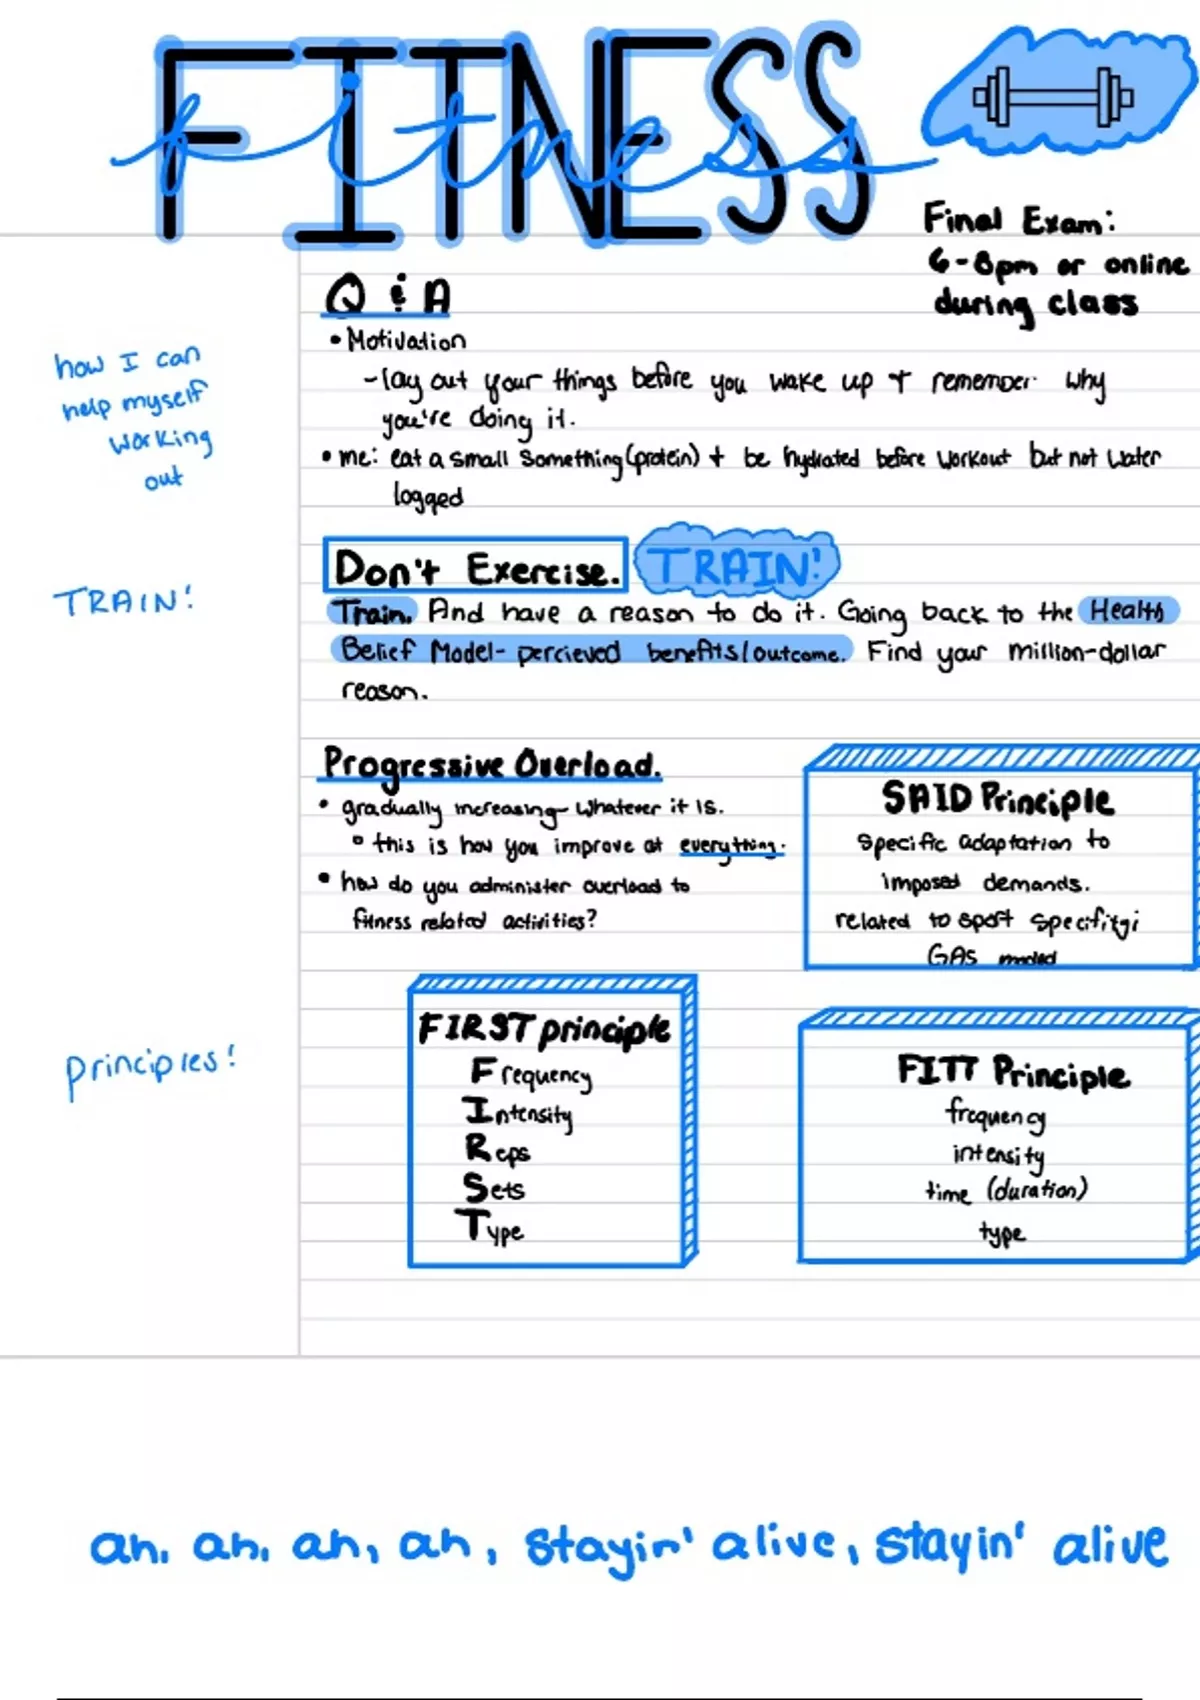 FITNESS
fitness
Final Exam:
6-8pm or online
during class
Q & A
• Motivation
- lay out your things before you wake up + remember why
you're doing it.
• me: eat a small something (protein) + be hydrated before workout but not water
logged
how I can
help myself
working
out
Don't Exercise. TRAIN!
TRAIN!
Train. And have a reason to do it. Going back to the Health
Belief Model - percieved benefits/outcome. Find your million-dollar
reason.
Progressive Overload.
• gradually increasing whatever it is.
° this is how you improve at everything.
• how do you administer overload to
fitness related activities?
SAID Principle
specific adaptation to
imposed demands.
related to sport specifitgi
GAS model
principles!
FIRST principle
Frequency
Intensity
Reps
Sets
Type
FITT Principle
frequency
intensity
time (duration)
type
ah, ah, ah, ah, stayin' alive, stayin' alive